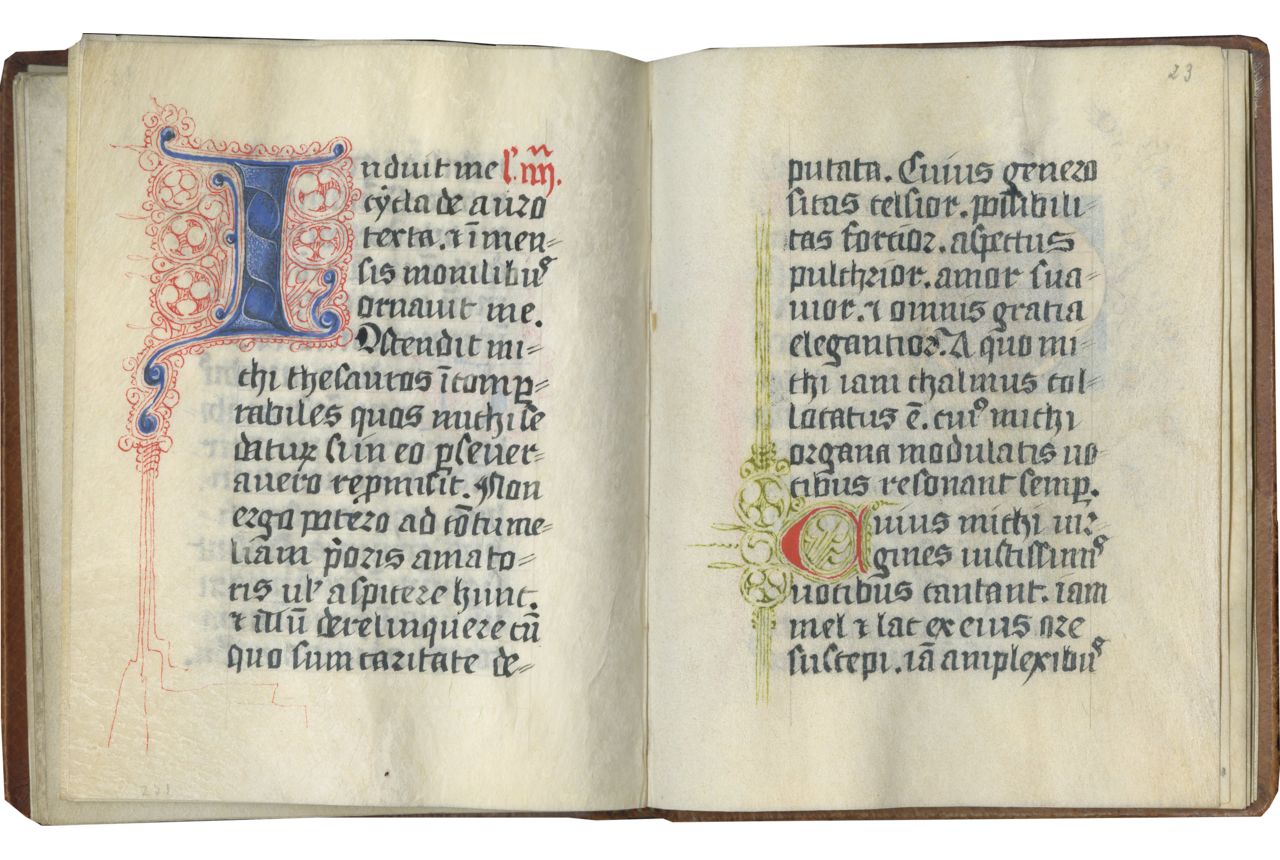 Induit me l'. iiij.
cyclade auro
texta. ⁊ īmen=
sis monilibꝰ
ornauit me.
Ostendit mi=
chi thesauros īcomꝑ=
rabiles quos michi se
daturꝝ si in eo ꝑseuer=
auero repmisit. Non
ergo potero ad cōtume=
liam p̄oris amato=
ris ul' aspicere hunc.
⁊ illū derelinquere cū
quo sum caritate de=
23
putata. Cuius genero
sitas celsior. possibili=
tas fortior. aspectus
pulchrior. amor sua=
uior. ⁊ omnis gratia
elegantior. A quo mi=
chi iam thalmus col=
locatus ē. cuiꝰ michi
organa modulatis uo=
cibus resonant semꝑ.
Cuius michi uir=
gines iustissimꝰ
uocibus cantant. iam
mel ⁊ lac ex eius ore
suscepi. iā amplexibꝰ